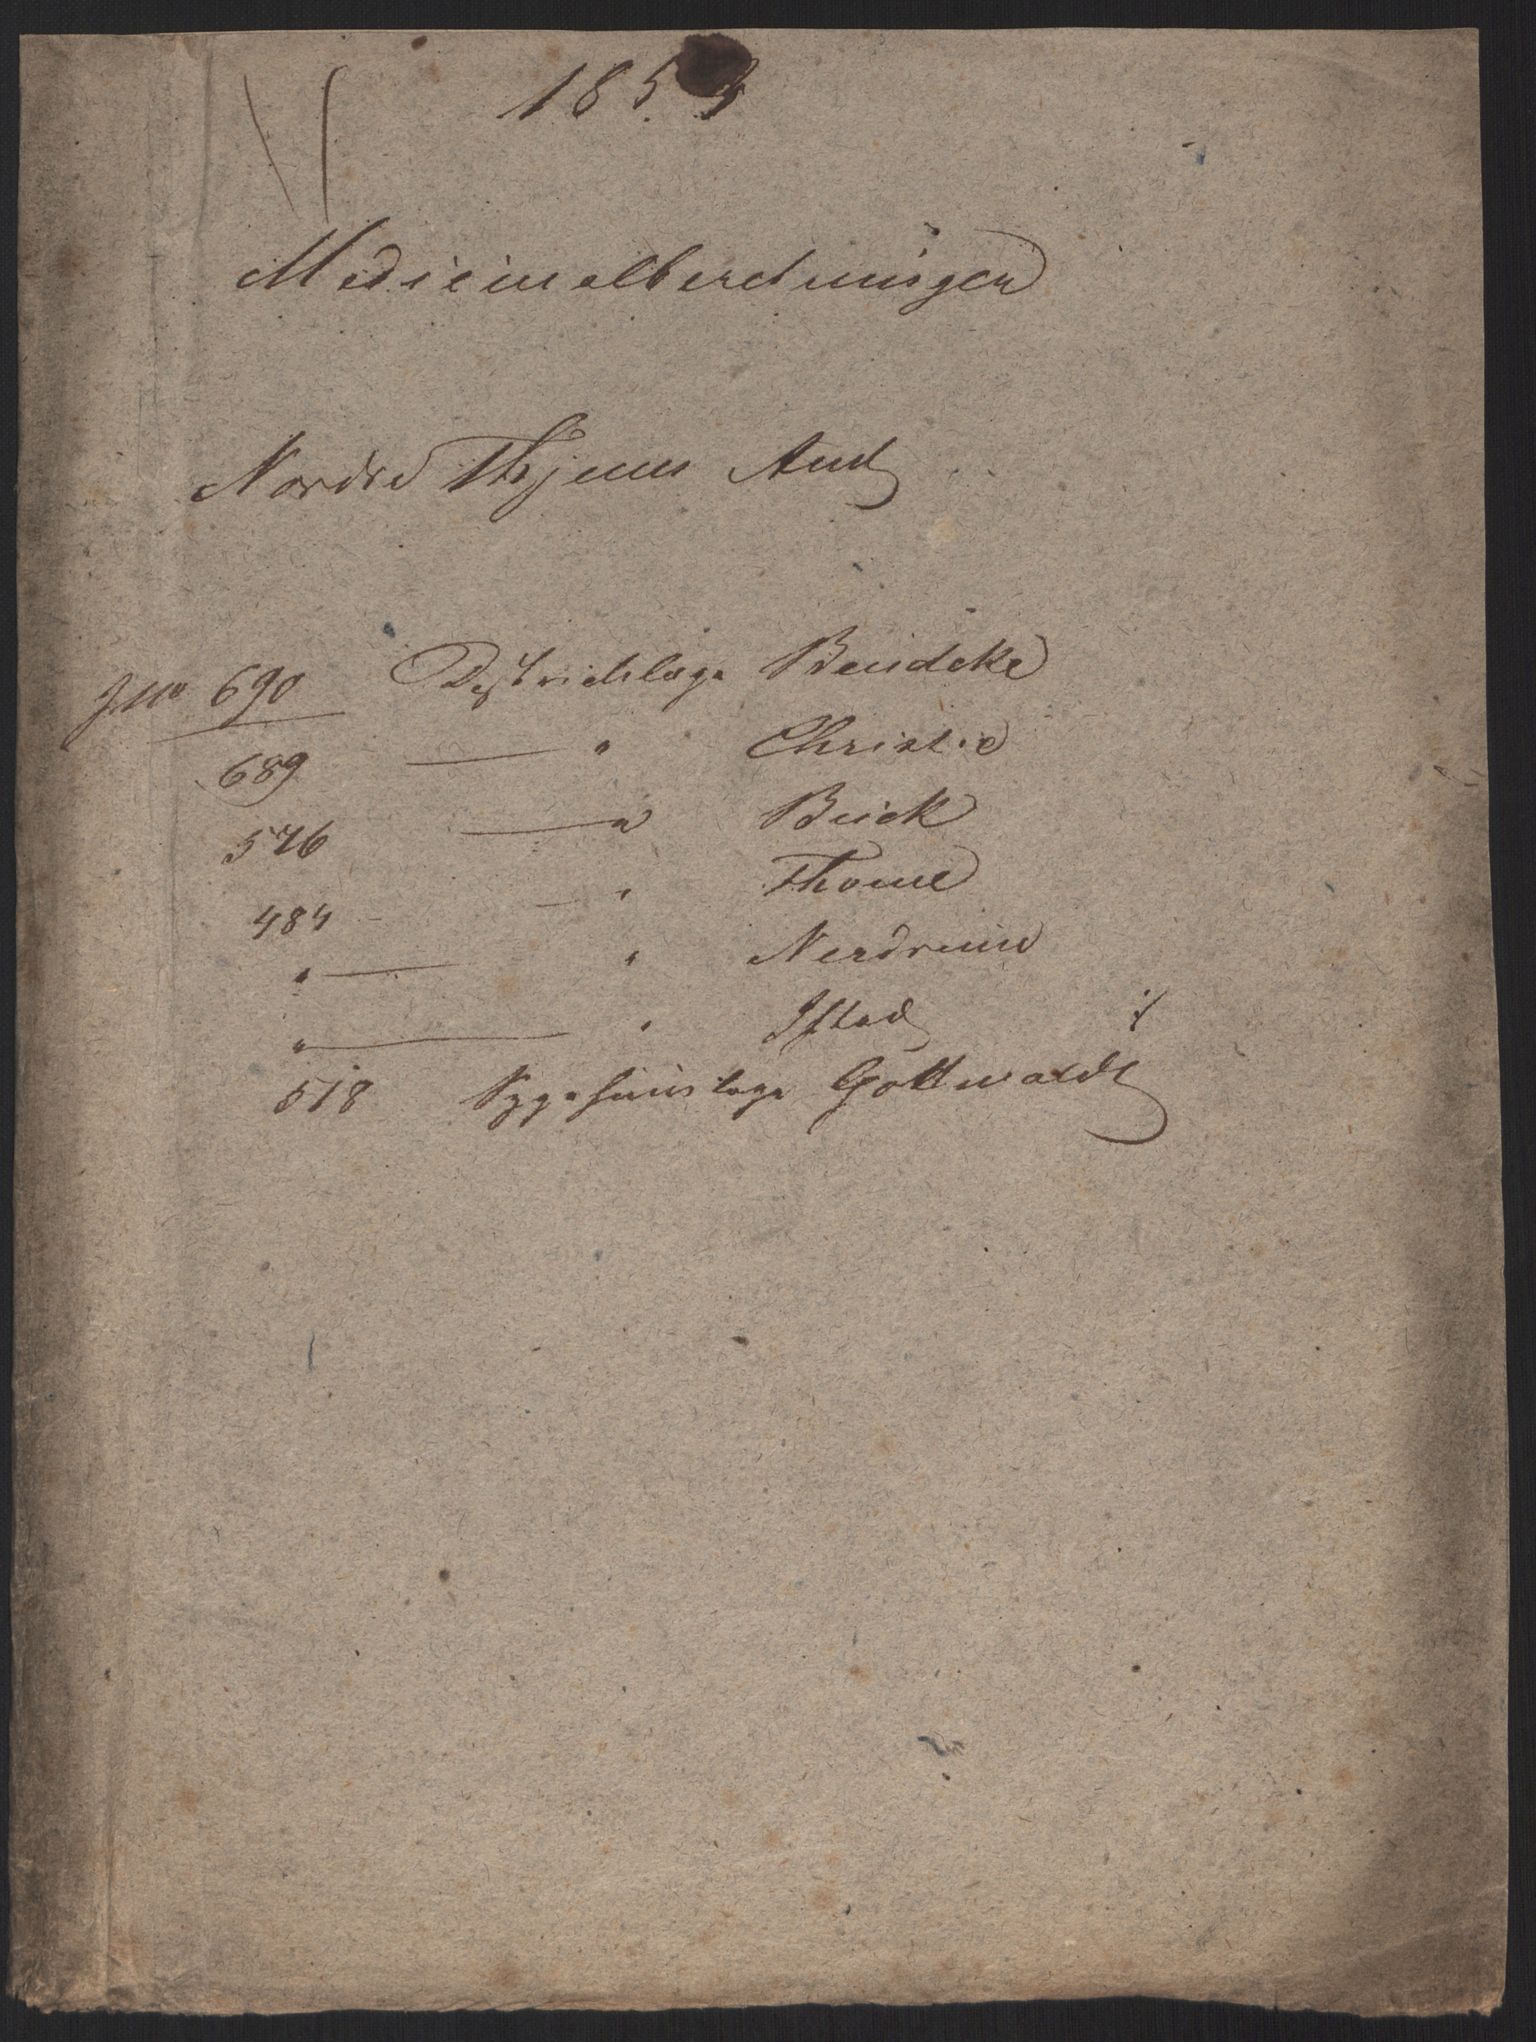 1854
Medicinalberetninger
Nordre Thjems Amt
J. No 690 Districtslæge Bendeke
689 — " Christie
576 — " Buck
484 — " Thome
" — " Nerdrum
" — " Istad
518 Sygehuuslæge Gottwaldt